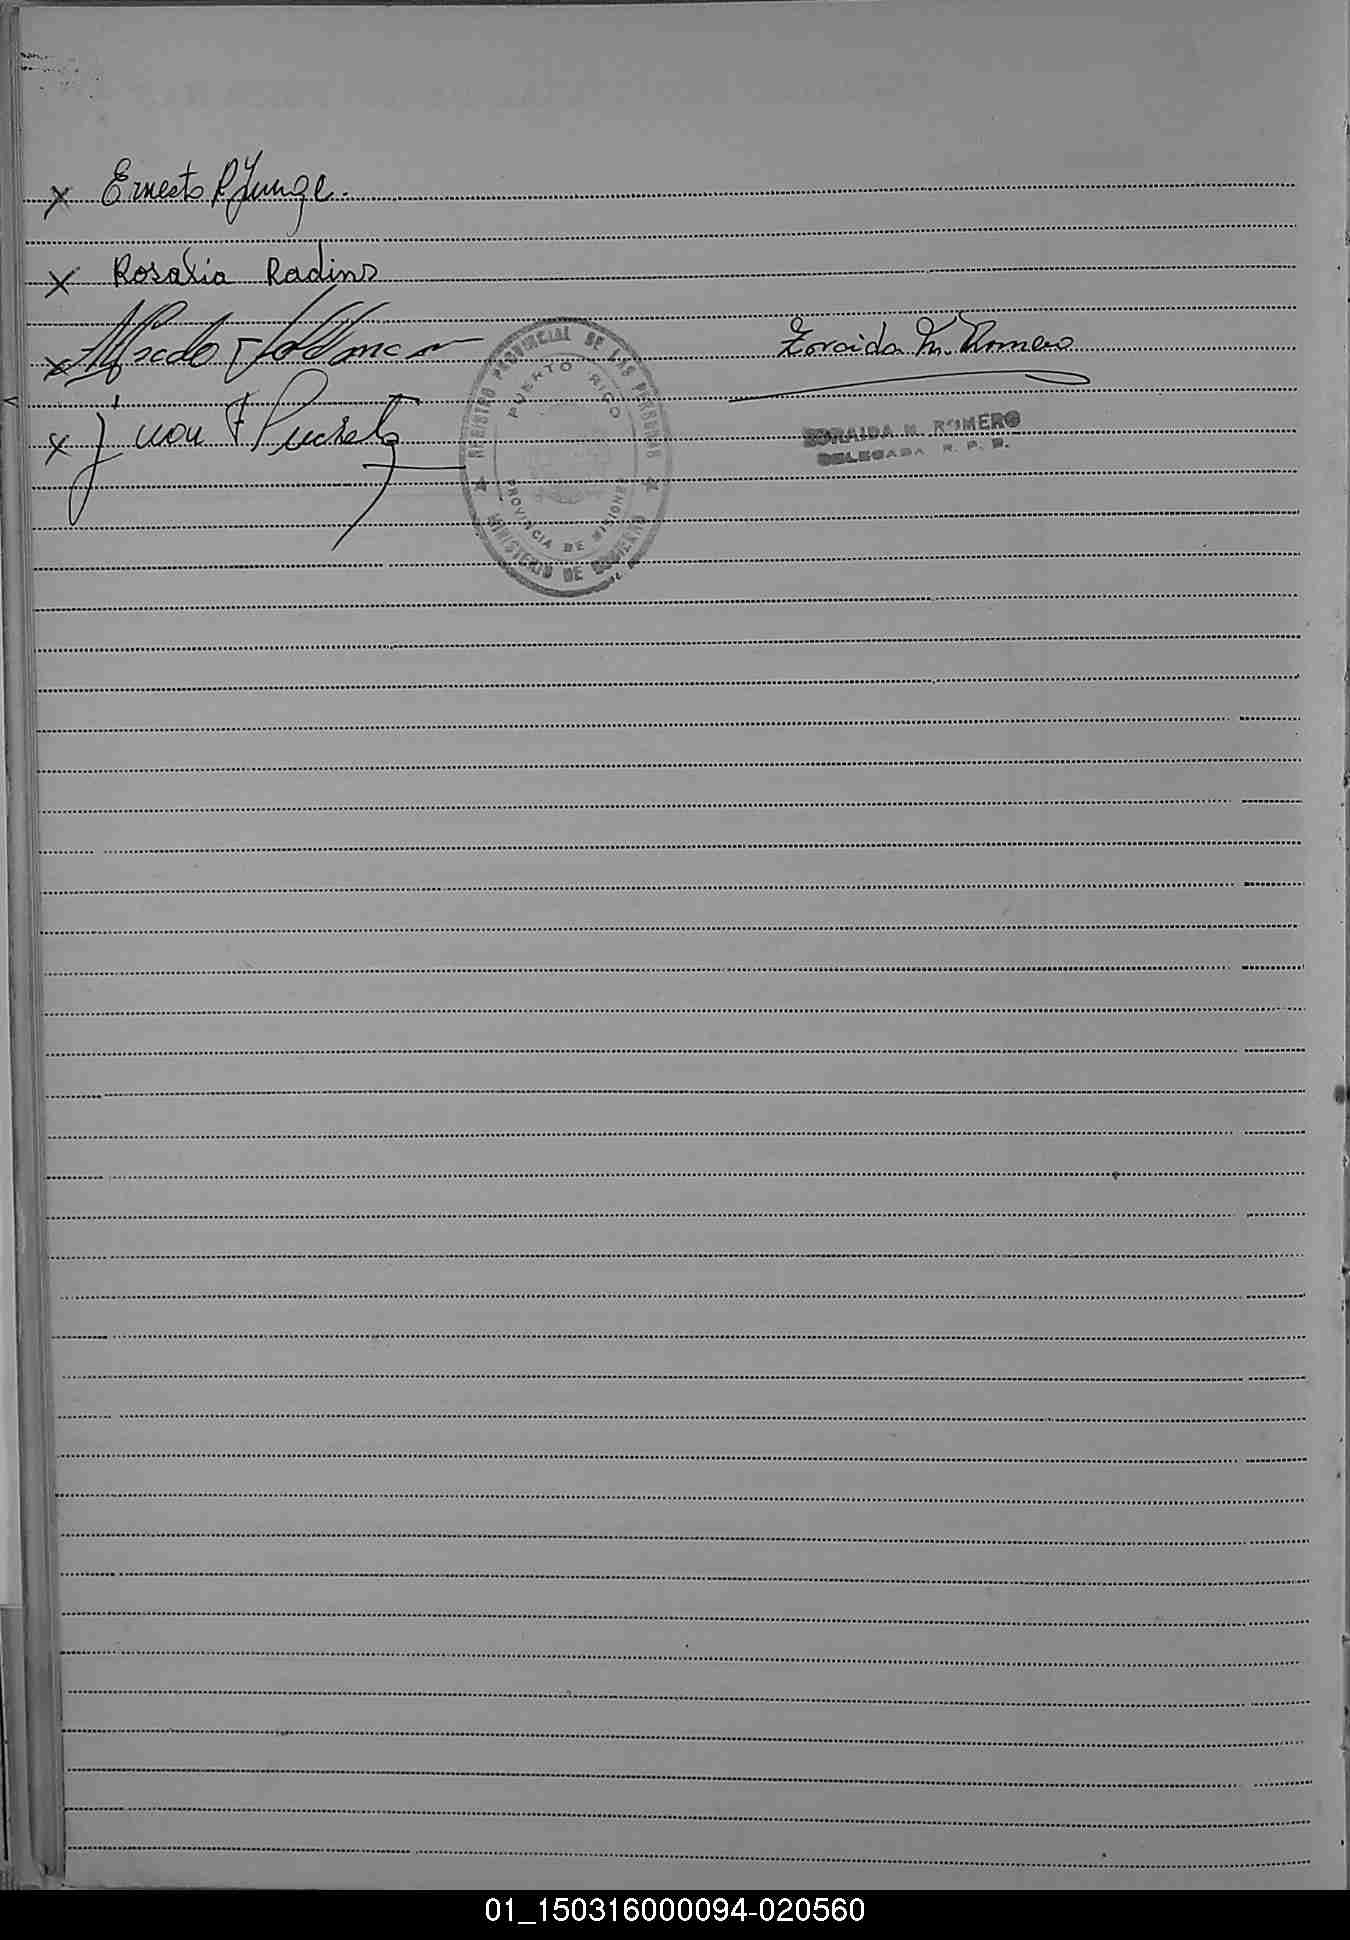 x Ernesto R Junge.
x Rosalia Radins
x Alfredo
x Juan F
REGISTRO PROVINCIAL DE LAS PERSONAS
PUERTO RICO
PROVINCIA DE MISIONES
MINISTERIO DE GOBIERNO
Zoraida M. Romero
ZORAIDA M. ROMERO
DELEGADA R. P. P.
01_150316000094-020560